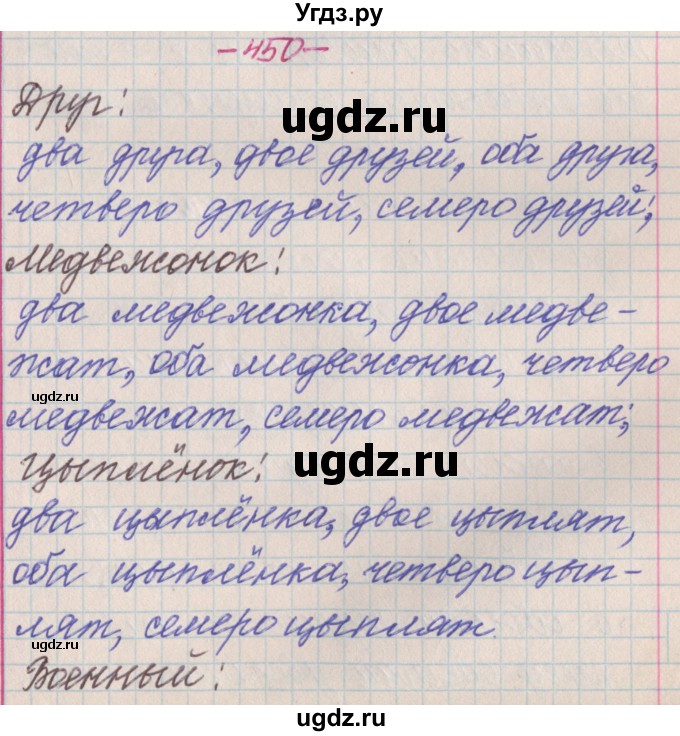 Угдз.ру
-450-
Друг:
ugdz.ru
два друга, двое друзей, оба друга,
четверо друзей, семеро друзей;
Медвежонок:
два медвежонка, двое медве-
жат, оба медвежонка, четверо
ugdz.ru
медвежат, семеро медвежат;
Цыплёнок:
ugdz.ru
два цыплёнка, двое цыплят,
оба цыплёнка, четверо цып-
лят, семеро цыплят.
ugdz.ru
Военный:
ugdz.ru